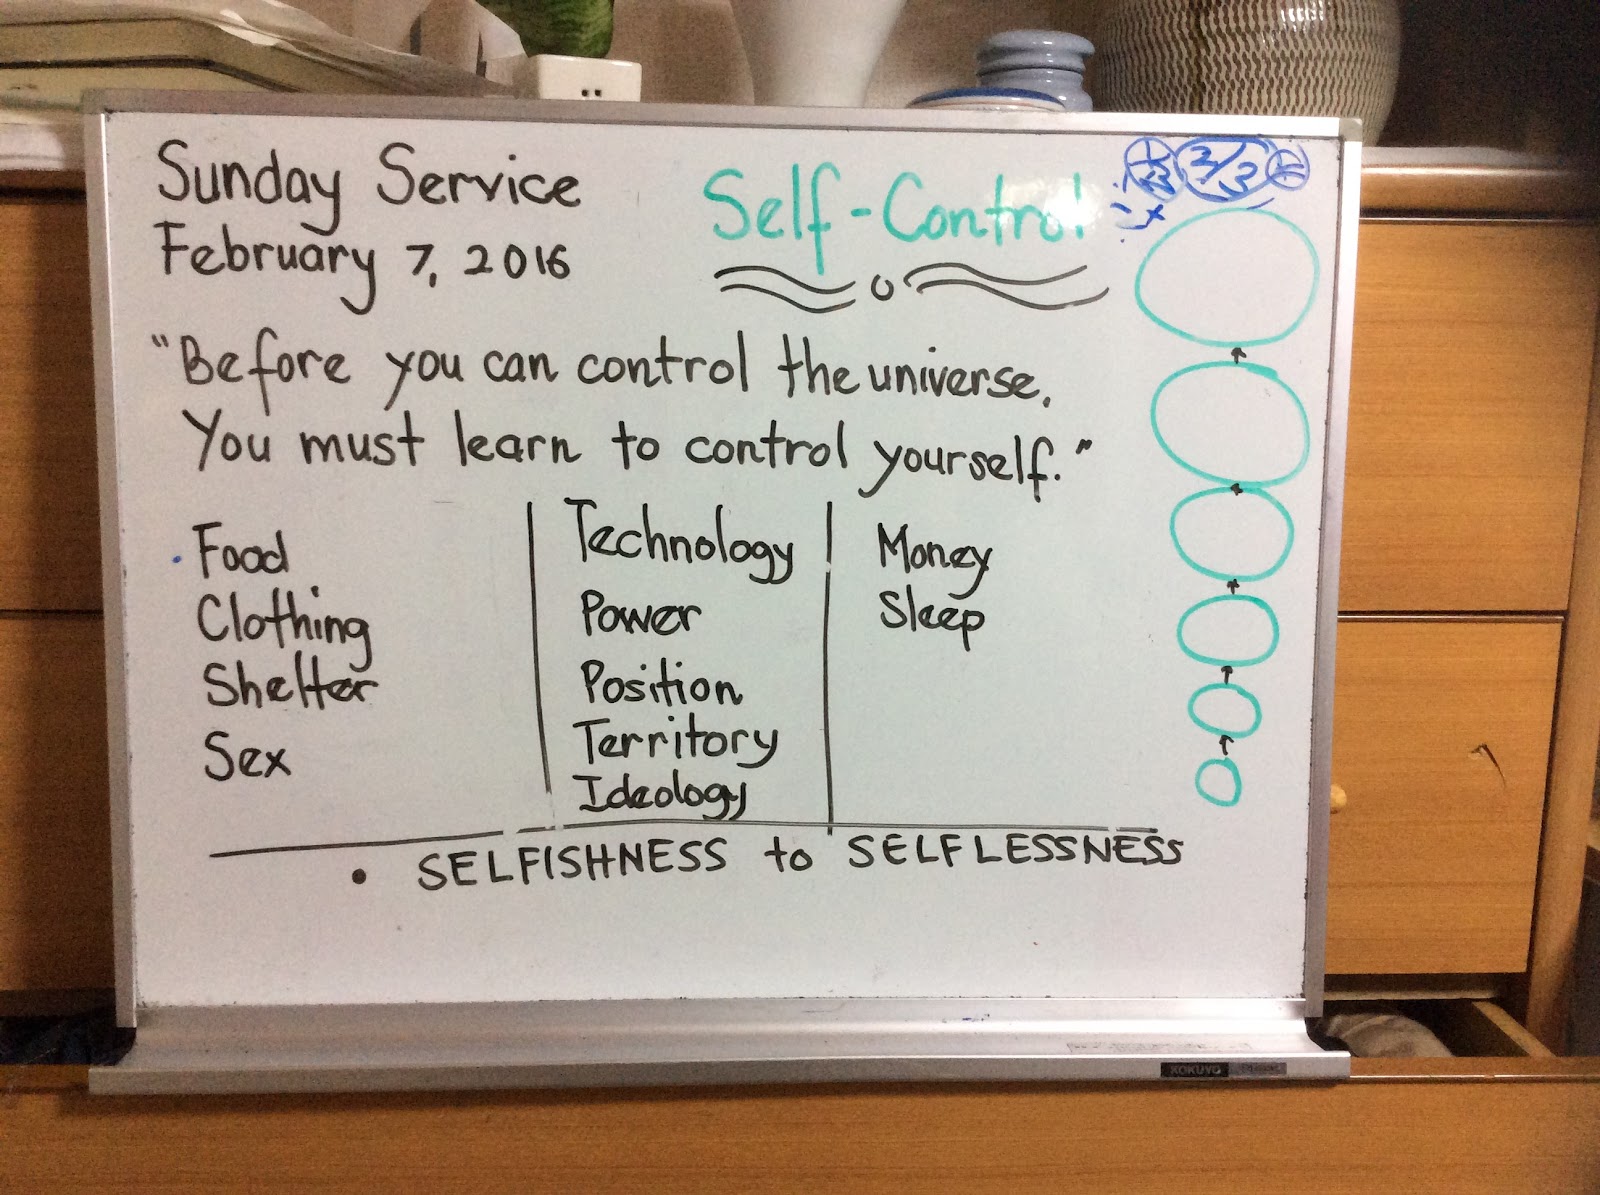 Sunday Service
February 7, 2016
Self-Control
"Before you can control the universe.
You must learn to control yourself."
Food
Clothing
Shelter
Sex
Technology
Power
Position
Territory
Ideology
Money
Sleep
• SELFISHNESS to SELFLESSNESS
KOKUYO